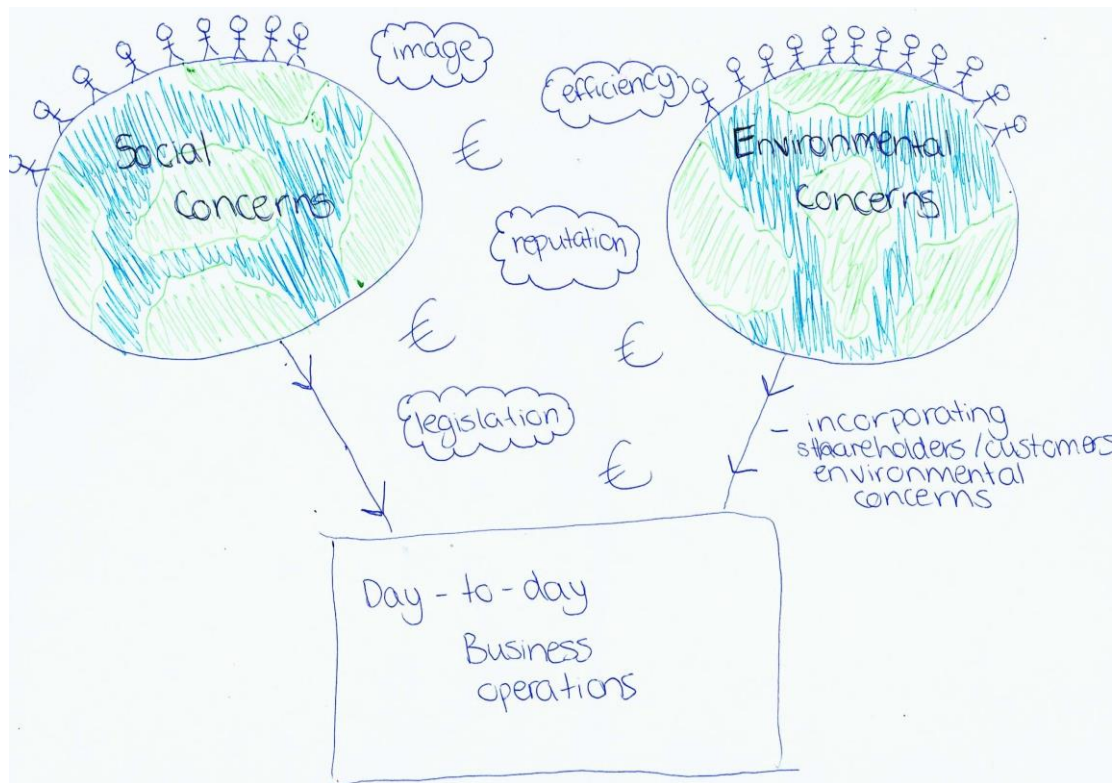 image
efficiency
Social
Concerns
€
Environmental
Concerns
reputation
€
€
legislation
- incorporating
shareholders/customers
environmental
concerns
€
Day-to-day
Business
operations